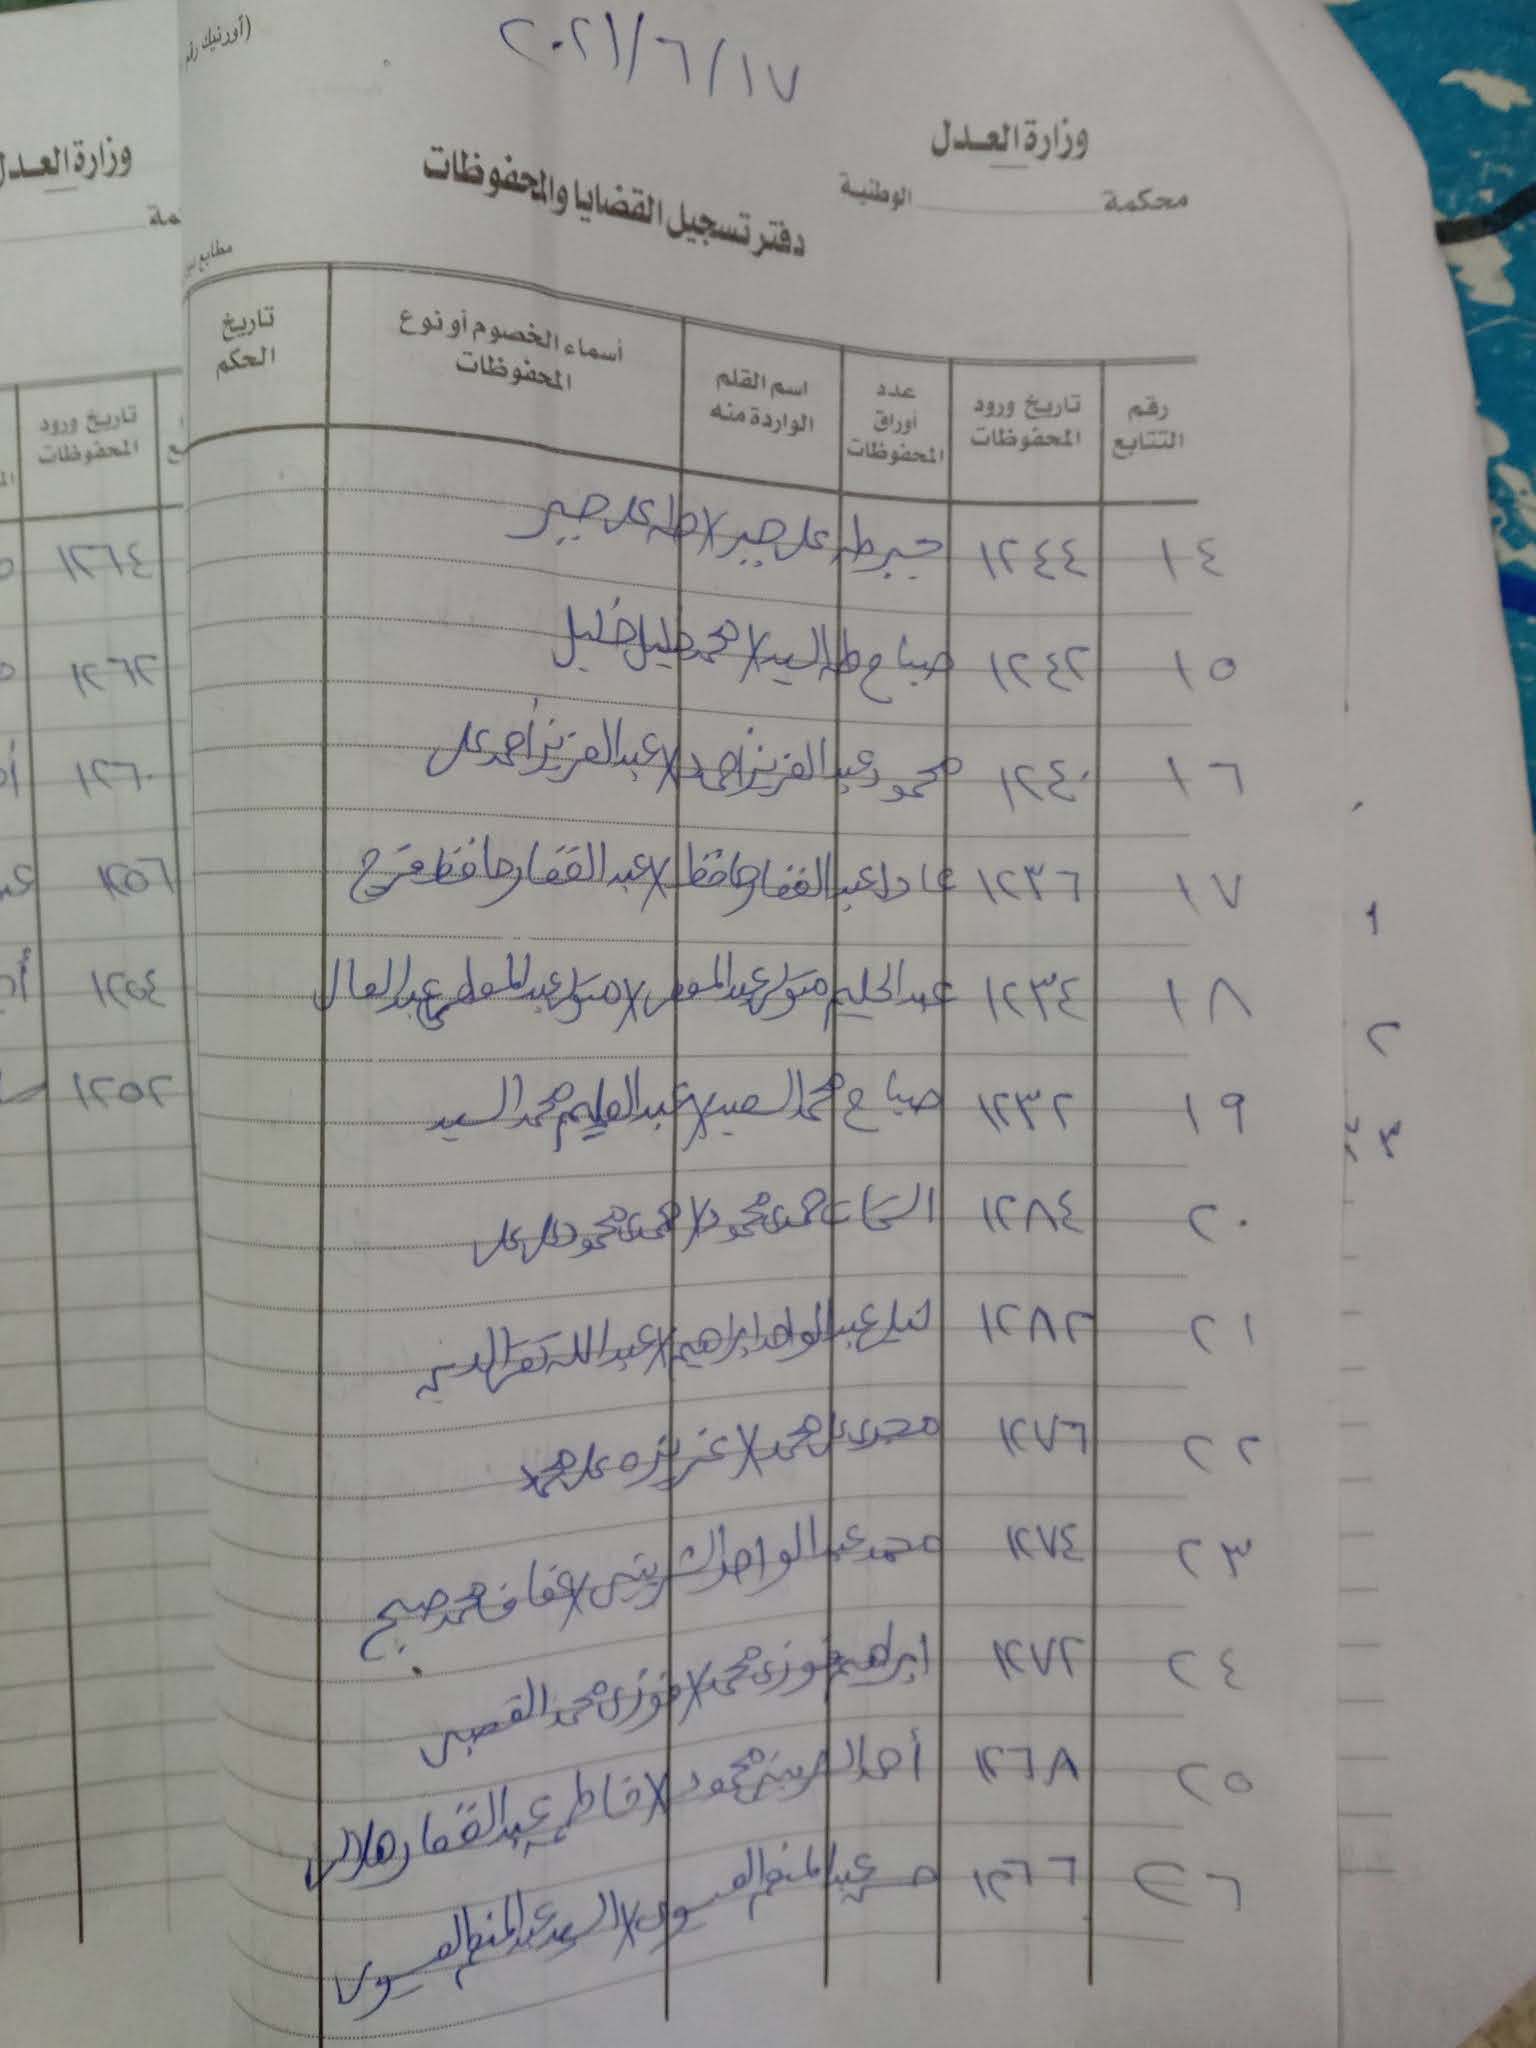 (أورنيك رقم
٢٠٢١/٦/١٧
وزارة العدل
محكمة ــــــــــ الوطنية
دفتر تسجيل القضايا والمحفوظات
رقم التتابع
تاريخ ورود المحفوظات
عدد أوراق المحفوظات
اسم القلم الواردة منه
أسماء الخصوم أو نوع المحفوظات
تاريخ الحكم
١٤ ١٢٤٤ جبر طه على جبر / طه على جبر
١٥ ١٢٤٢ صباح طه السيد / محمد خليل خليل
١٦ ١٢٤٠ محمود عبد العزيز أحمد / عبد العزيز أحمد على
١٧ ١٢٣٦ عادل عبد الغفار حافظ / عبد الغفار حافظ فرج
١٨ ١٢٣٤ عبد الحليم متولى عبد المعطى / متولى عبد المعطى عبد العال
١٩ ١٢٣٢ صباح محمد السيد / عبد العليم محمد السيد
٢٠ ١٢٨٤ حمدى محمود / حمدى محمود على على
٢١ ١٢٨٢ عبد الواحد ابراهيم / عبد الله
٢٢ ١٢٧٦ مجدى على محمد / عزيزه على محمد
٢٣ ١٢٧٤ محمد عبد الواحد الشربينى / عفاف محمد صبح
٢٤ ١٢٧٢ ابراهيم فوزى محمد / فوزى محمد القصبى
٢٥ ١٢٦٨ أحمد محمود / فاطمه عبد الغفار هلالى
٢٦ ١٢٦٦ عبد المنعم العيسوى / السيد عبد المنعم العيسوى
وزارة العدل
مطابع
تاريخ ورود المحفوظات
١٢٦٤
١٢٦٢
١٢٦٠
١٢٥٦
١٢٥٤
١٢٥٢
١
٢
٣